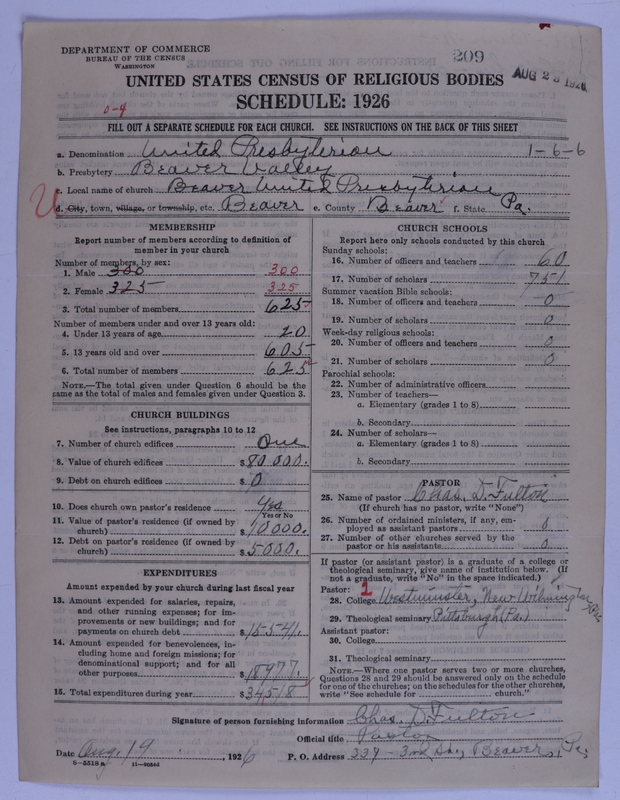 DEPARTMENT OF COMMERCE
BUREAU OF THE CENSUS
WASHINGTON
209
AUG 2 1926
UNITED STATES CENSUS OF RELIGIOUS BODIES
SCHEDULE: 1926
0-4
FILL OUT A SEPARATE SCHEDULE FOR EACH CHURCH. SEE INSTRUCTIONS ON THE BACK OF THIS SHEET
a. Denomination United Presbyterian 1-6-6
b. Presbytery Beaver Valley
c. Local name of church Beaver United Presbyterian
d. City, town, village, or township, etc. Beaver e. County Beaver f. State Pa.
MEMBERSHIP
Report number of members according to definition of
member in your church
Number of members, by sex:
1. Male 300 300
2. Female 325 325
3. Total number of members 625
Number of members under and over 13 years old:
4. Under 13 years of age 20
5. 13 years old and over 605
6. Total number of members 625
NOTE.—The total given under Question 6 should be the
same as the total of males and females given under Question 3.
CHURCH BUILDINGS
See instructions, paragraphs 10 to 12
7. Number of church edifices One
8. Value of church edifices $80000.
9. Debt on church edifices $0
10. Does church own pastor's residence Yes
Yes or No
11. Value of pastor's residence (if owned by
church) $10000.
12. Debt on pastor's residence (if owned by
church) $5000.
EXPENDITURES
Amount expended by your church during last fiscal year
13. Amount expended for salaries, repairs,
and other running expenses; for im-
provements or new buildings; and for
payments on church debt $15541.
14. Amount expended for benevolences, in-
cluding home and foreign missions; for
denominational support; and for all
other purposes $18977.
15. Total expenditures during year $34518
CHURCH SCHOOLS
Report here only schools conducted by this church
Sunday schools:
16. Number of officers and teachers 60
17. Number of scholars 751
Summer vacation Bible schools:
18. Number of officers and teachers 0
19. Number of scholars 0
Week-day religious schools:
20. Number of officers and teachers 0
21. Number of scholars 0
Parochial schools:
22. Number of administrative officers
23. Number of teachers—
a. Elementary (grades 1 to 8)
b. Secondary
24. Number of scholars—
a. Elementary (grades 1 to 8)
b. Secondary
PASTOR
25. Name of pastor Chas. D. Fulton
(If church has no pastor, write "None")
26. Number of ordained ministers, if any, em-
ployed as assistant pastors 0
27. Number of other churches served by the
pastor or his assistants 0
If pastor (or assistant pastor) is a graduate of a college or
theological seminary, give name of institution below. (If
not a graduate, write "No" in the space indicated.)
Pastor:
28. College Westminster, New Wilmington, Pa.
29. Theological seminary Pittsburgh (Pa.)
Assistant pastor:
30. College
31. Theological seminary
NOTE.—Where one pastor serves two or more churches,
Questions 28 and 29 should be answered only on the schedule
for one of the churches; on the schedules for the other churches,
write "See schedule for church."
Signature of person furnishing information Chas. D. Fulton
Official title Pastor
Date Aug. 19, 1926 P. O. Address 339 - 3rd St., Beaver, Pa.